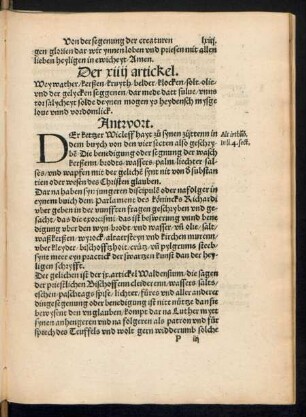 Von der segenung der creaturen lxiij.
gen glorien dar wir ynnen loben vnd priesen mit allen
lieben heyligen in ewicheyt Amen.
Der xiiij artickel.
Weywather, kertzen kruyth belder klocken solt olie,
vnd der gelycken seggenen dat mede dact
vnd vordomlick.
Antwort.
DEr ketzer Wicleff hayt zu synen zürtenn in
dem buych von den vier seten also geschry
bē. Die benedigung oder segenung der wasch
kertzenn, brodes, wassers, palm, liechter, saltz
es, vnd wapfen mit des gelichē synt nit von 8 substan
tien oder wesen des Christen glauben.
Dar na haben syn jungeren discipulē oder nafolger in
eynem buich dem Parlament des könincks Richardi
vber geben in der vunfften fragen geschryben vnd ge-
sacht, das die exorcismi, das ist besyerung vnnd bene
digung vber den wyn, brot, vnd wasser vñ olie, saltz,
waßkertzenn, wyrock, altaer steyn vnd kirchen muren,
vber kleyder, bischoffshoit, crütz, vñ pylgrums steeb,
syn meer eyn practick der swartzen kunst dan der hey
ligen schryfft.
Des gelichen ist der jr. artickel Waldensium, die sagen
der priestlichen Bischoffenn cleider enn, wassers, saltz,
eschen, paschetags spiß, lichter, füres vnd aller anderer
dinge segenung oder benedigung ist niet nütze dan sie
bewysent den vnglauben, kompt dar na Luther myt
synen anhengeren vnd na folgeren als patron vnd für
sprech des Teuffels vnd wolt gern widderumb solche
P iij